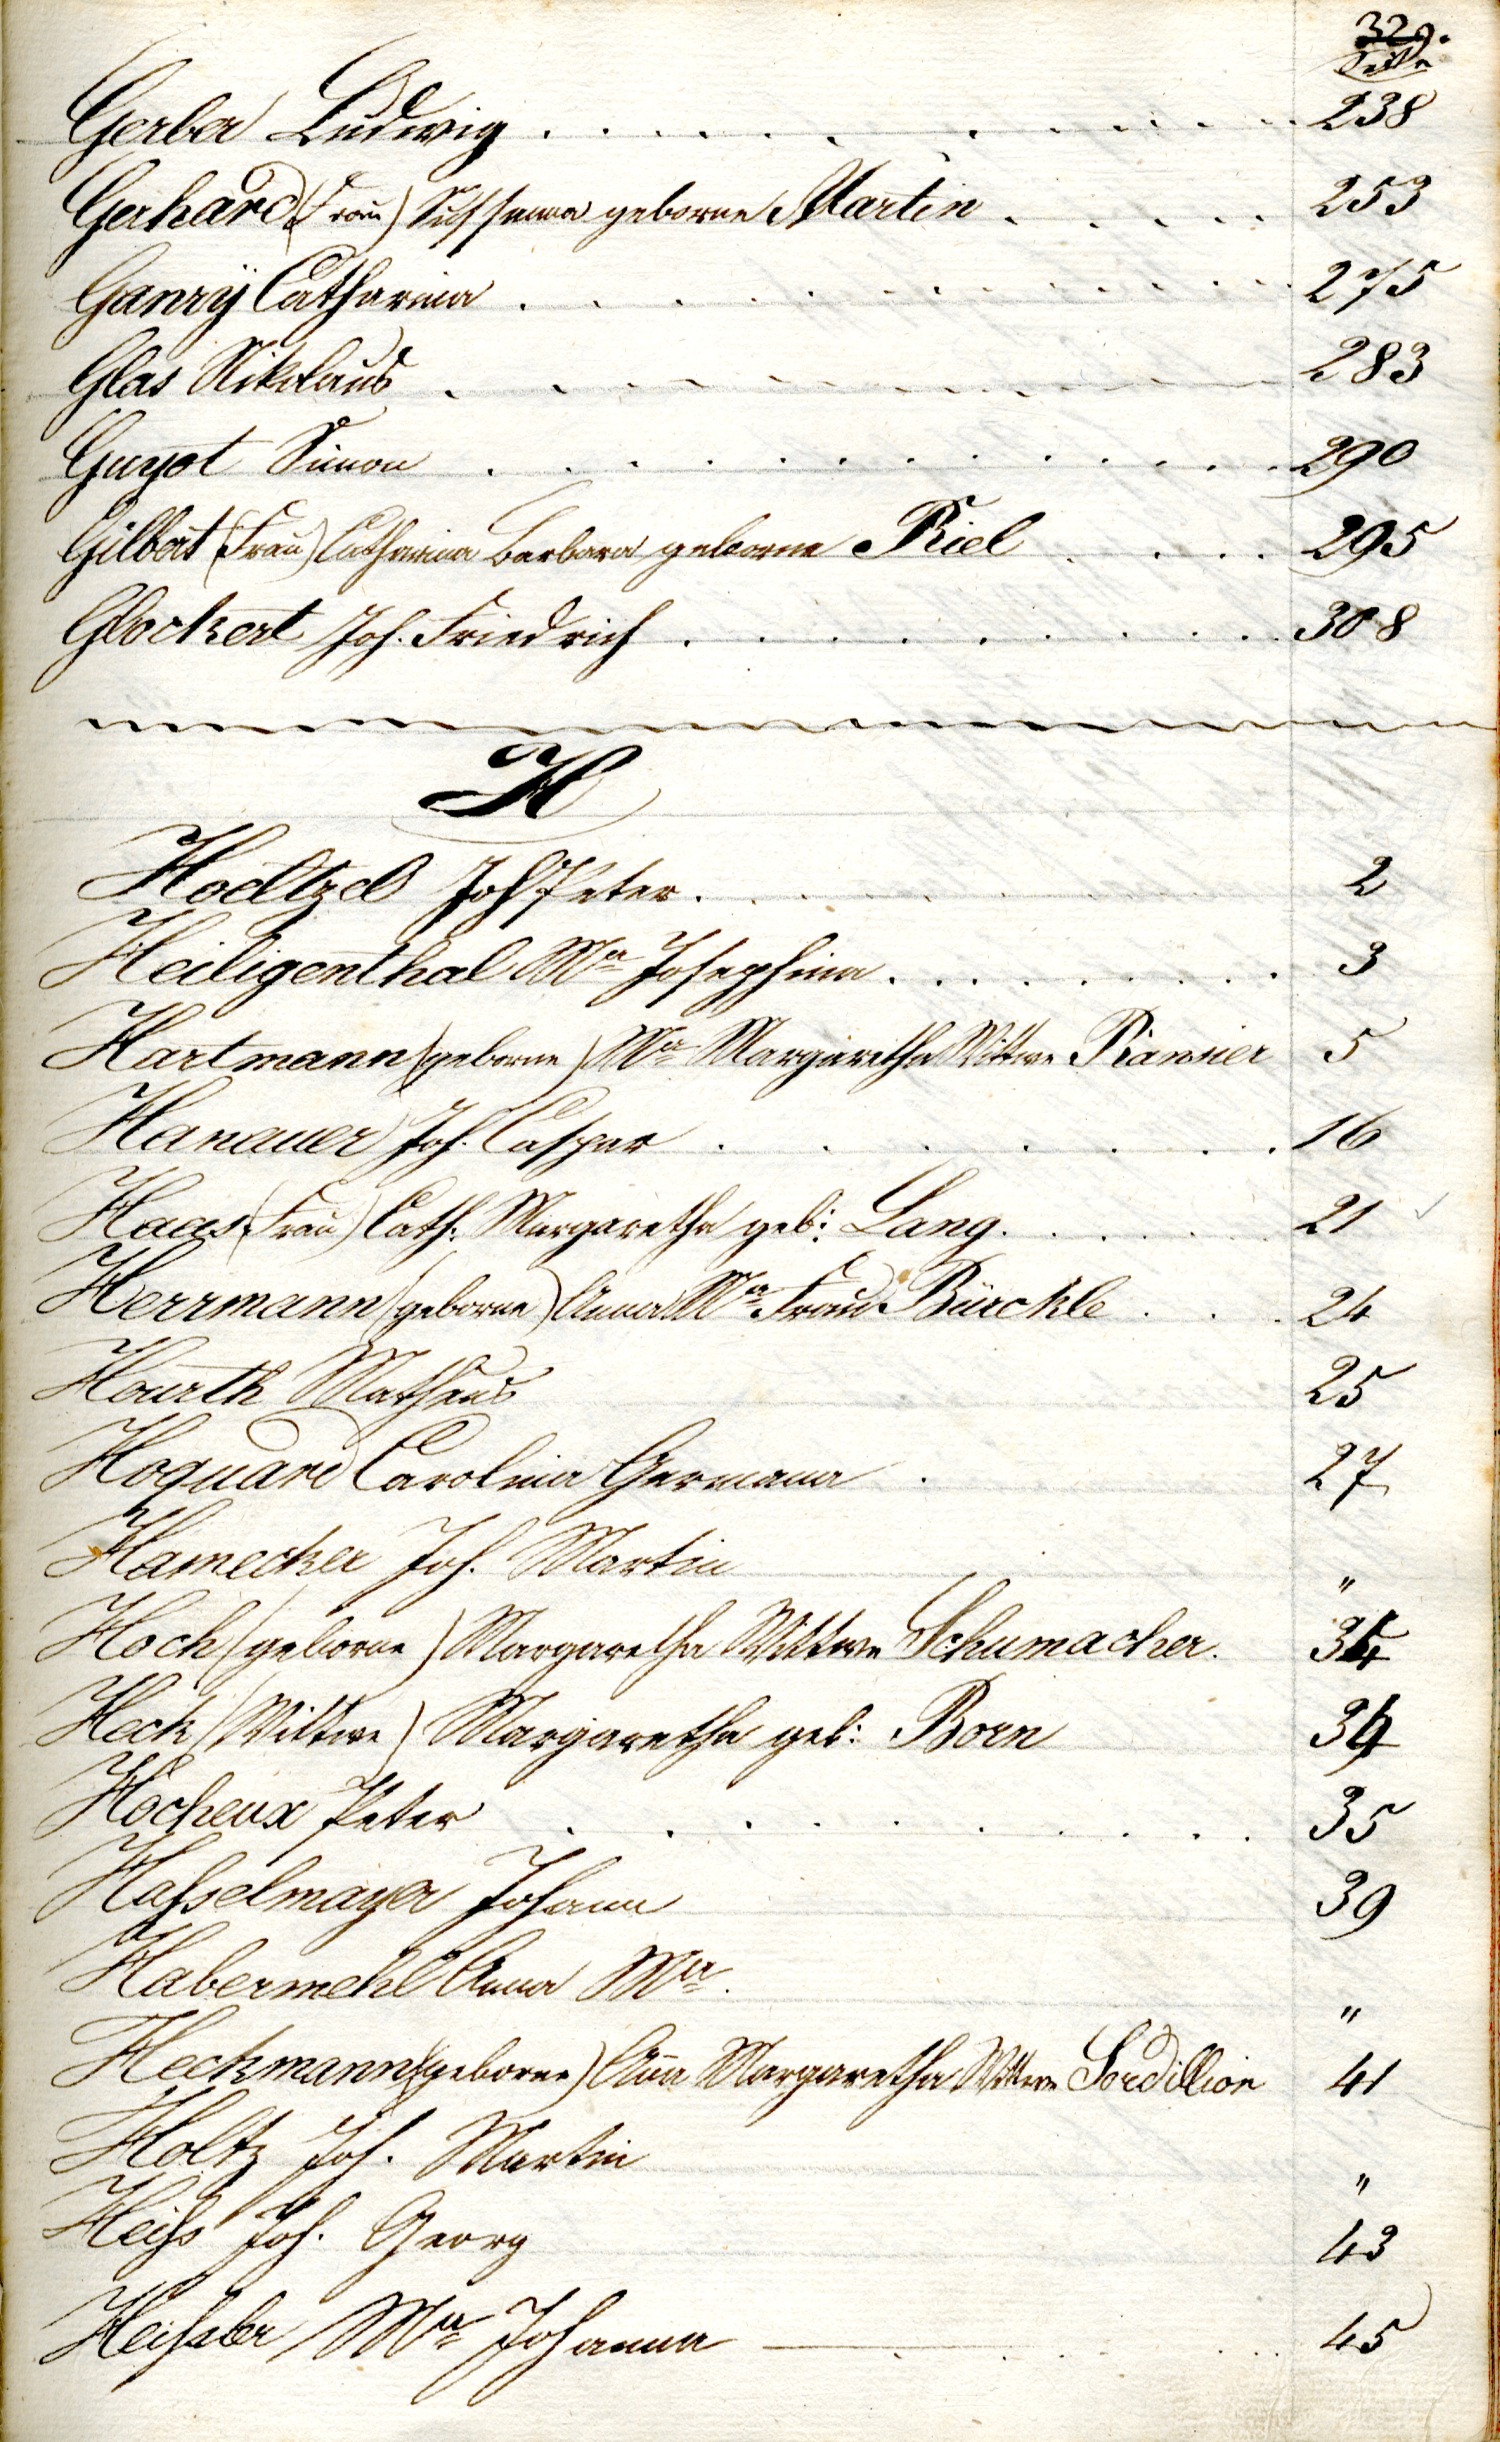 329.
Seite
Gerber Ludwig . . . . . . . . . . 238
Gerhard (Frau) Susanna geborne Martin . . . . . 253
Ganry Catharina . . . . . . . . . . 275
Glas Nikolaus . . . . . . . . . . 283
Guyot Simon . . . . . . . . . . 290
Gilbert (Frau) Catharina Barbara geborne Riel . . . . 295
Glockert Joh. Friedrich . . . . . . . . . 308
H
Hoeltzel Joh Peter . . . . . . . . 2
Heiligenthal Ma Josephina . . . . . . . . . 3
Hartmann (geborne) Ma Margaretha Wittwe Piansier 5
Hanauer Joh. Caspar . . . . . . . 16
Haas (Frau) Cath. Margaretha geb: Lang . . . . . . 21
Herrmann (geborne) Anna Ma Frau Bürckle . . . 24
Hourth Matheus 25
Hoquard Carolina Germana . 27
Hamecker Joh. Martin "
Hoch (geborne) Margaretha Wittwe Schumacher. 34
Heck (Wittwe) Margaretha geb: Born 34
Hocheux Peter . . . . . . . . . 35
Hasselmayer Johann 39
Habermehl Anna Ma. "
Heckmann (geborne) Anna Margaretha Wittwe Sordillion 41
Holtz Joh. Martin "
Heiss Joh. Georg 43
Heissler Ma Johanna 45